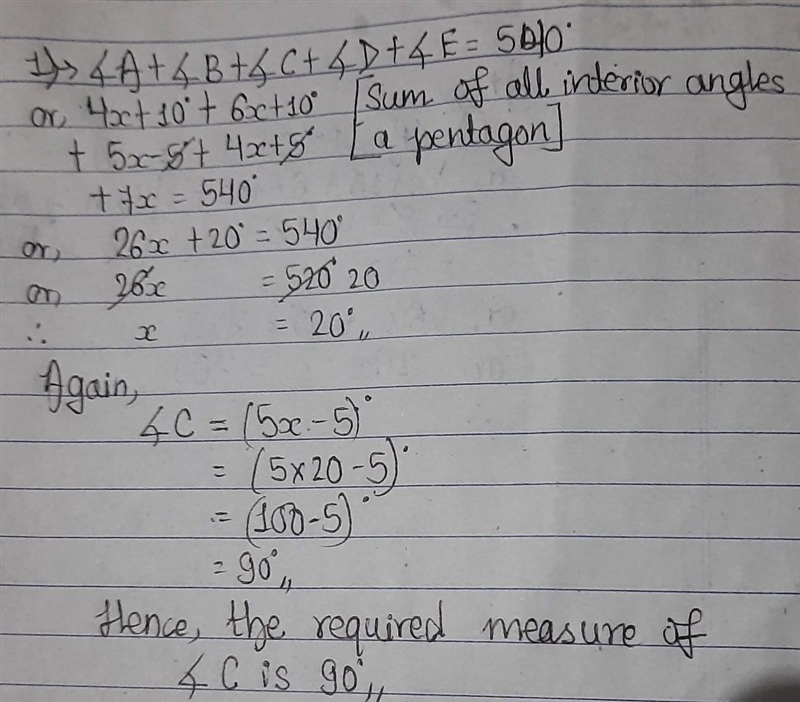 1)→ ∡A + ∡B + ∡C + ∡D + ∡E = 540°
or, 4x+10° + 6x+10° [Sum of all interior angles
+ 5x-5° + 4x+5° [a pentagon]
+ 7x = 540°
or, 26x + 20° = 540°
or, 26x = 520° 20
∴ x = 20°,,
Again,
∡C = (5x-5)°
= (5×20-5)°
= (100-5)°
= 90°,,
Hence, the required measure of
∡C is 90°,,